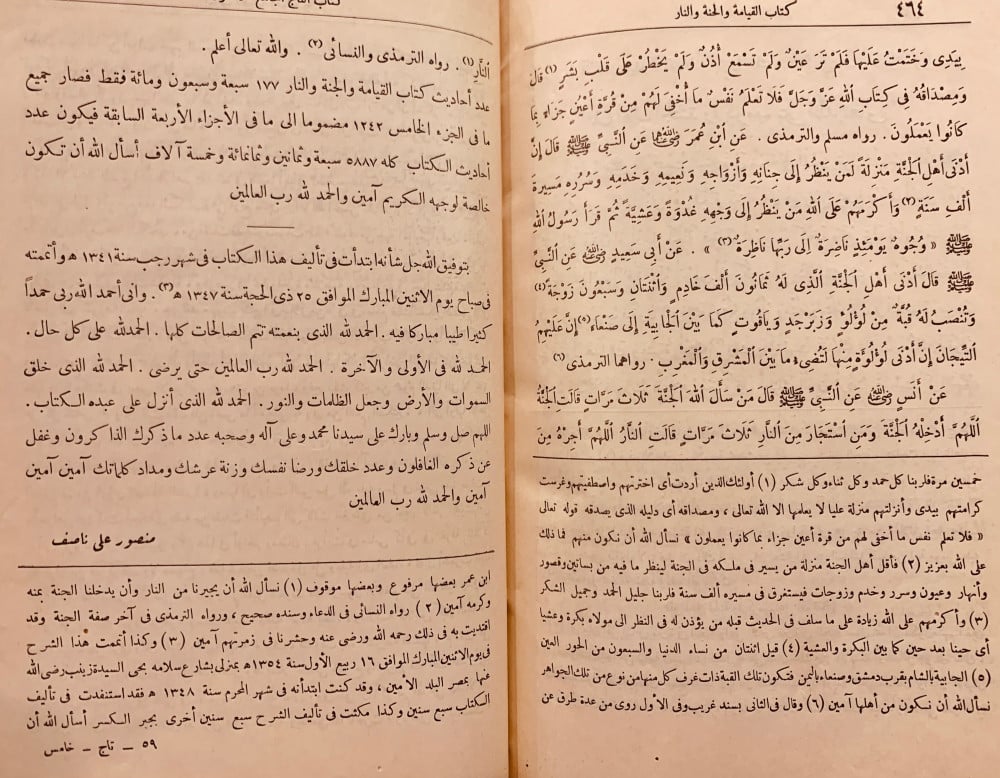 ٤٦٤
كتاب القيامة والجنة والنار
بِيَدِي وَخَتَمْتُ عَلَيْهَا فَلَمْ تَرَ عَيْنٌ وَلَمْ تَسْمَعْ أُذُنٌ وَلَمْ يَخْطُرْ عَلَى قَلْبِ بَشَرٍ (١) قَالَ
وَمِصْدَاقُهُ فِي كِتَابِ اللهِ عَزَّ وَجَلَّ فَلَا تَعْلَمُ نَفْسٌ مَا أُخْفِيَ لَهُمْ مِنْ قُرَّةِ أَعْيُنٍ جَزَاءً بِمَا
كَانُوا يَعْمَلُونَ . رواه مسلم والترمذى . عَنِ ابْنِ عُمَرَ رضي الله عنهما عَنِ النَّبِيِّ ﷺ قَالَ إِنَّ
أَدْنَى أَهْلِ الْجَنَّةِ مَنْزِلَةً لَمَنْ يَنْظُرُ إِلَى جِنَانِهِ وَأَزْوَاجِهِ وَنَعِيمِهِ وَخَدَمِهِ وَسُرُرِهِ مَسِيرَةَ
أَلْفِ سَنَةٍ (٢) وَأَكْرَمُهُمْ عَلَى اللهِ مَنْ يَنْظُرُ إِلَى وَجْهِهِ غُدْوَةً وَعَشِيَّةً ثُمَّ قَرَأَ رَسُولُ اللهِ
ﷺ « وُجُوهٌ يَوْمَئِذٍ نَاضِرَةٌ إِلَى رَبِّهَا نَاظِرَةٌ (٣) » . عَنْ أَبِي سَعِيدٍ رضي الله عنه عَنِ النَّبِيِّ
ﷺ قَالَ أَدْنَى أَهْلِ الْجَنَّةِ الَّذِي لَهُ ثَمَانُونَ أَلْفَ خَادِمٍ وَاثْنَتَانِ وَسَبْعُونَ زَوْجَةً (٤)
وَتُنْصَبُ لَهُ قُبَّةٌ مِنْ لُؤْلُؤٍ وَزَبَرْجَدٍ وَيَاقُوتٍ كَمَا بَيْنَ الْجَابِيَةِ إِلَى صَنْعَاءَ (٥) إِنَّ عَلَيْهِمُ
التِّيجَانَ إِنَّ أَدْنَى لُؤْلُؤَةٍ مِنْهَا لَتُضِيءُ مَا بَيْنَ الْمَشْرِقِ وَالْمَغْرِبِ . رواهما الترمذى (٦)
عَنْ أَنَسٍ رضي الله عنه عَنِ النَّبِيِّ ﷺ قَالَ مَنْ سَأَلَ اللهَ الْجَنَّةَ ثَلَاثَ مَرَّاتٍ قَالَتِ الْجَنَّةُ
اللَّهُمَّ أَدْخِلْهُ الْجَنَّةَ وَمَنِ اسْتَجَارَ مِنَ النَّارِ ثَلَاثَ مَرَّاتٍ قَالَتِ النَّارُ اللَّهُمَّ أَجِرْهُ مِنَ
خمسين مرة فلربنا كل حمد وكل ثناء وكل شكر (١) أولئك الذين أردت أى اخترتهم واصطفيتهم وغرست
كرامتهم بيدى وأنزلتهم منزلة عليا لا يعلمها الا الله تعالى ، ومصداقه أى دليله الذى يصدقه قوله تعالى
« فلا تعلم نفس ما أخفى لهم من قرة أعين جزاء بما كانوا يعملون » نسأل الله أن نكون منهم فما ذلك
على الله بعزيز (٢) فأقل أهل الجنة منزلة من يسير فى ملكه فى الجنة لينظر ما فيه من بساتين وقصور
وأنهار وعيون وسرر وخدم وزوجات فيستغرق فى مسيره ألف سنة فلربنا جليل الحمد وجميل الشكر
(٣) وأكرمهم على الله زيادة على ما سلف فى الحديث قبله من يؤذن له فى النظر الى مولاه بكرة وعشيا
أى حينا بعد حين كما بين البكرة والعشية (٤) قيل اثنتان من نساء الدنيا والسبعون من الحور العين
(٥) الجابية بالشام بقرب دمشق وصنعاء باليمن فتكون تلك القبة ذات غرف كل منها من نوع من تلك الجواهر
نسأل الله أن نكون من أهلها آمين (٦) وقال فى الثانى بسند غريب وفى الأول روى من عدة طرق عن
النَّارِ (١) . رواه الترمذى والنسائى (٢) . والله تعالى أعلم .
عدد أحاديث كتاب القيامة والجنة والنار ١٧٧ سبعة وسبعون ومائة فقط فصار جميع
ما فى الجزء الخامس ١٢٤٢ مضموما الى ما فى الأجزاء الأربعة السابقة فيكون عدد
أحاديث الكتاب كله ٥٨٨٧ سبعة وثمانين وثمانمائة وخمسة آلاف أسأل الله أن تكون
خالصة لوجهه الكريم آمين والحمد لله رب العالمين
بتوفيق الله جل شأنه ابتدأت فى تأليف هذا الكتاب فى شهر رجب سنة ١٣٤١ ه وأتممته
فى صباح يوم الاثنين المبارك الموافق ٢٥ ذى الحجة سنة ١٣٤٧ ه (٣) . وانى أحمد الله ربى حمداً
كثيرا طيبا مباركا فيه . الحمد لله الذى بنعمته تتم الصالحات كلها . الحمد لله على كل حال .
الحمد لله فى الأولى والآخرة . الحمد لله رب العالمين حتى يرضى . الحمد لله الذى خلق
السموات والأرض وجعل الظلمات والنور . الحمد لله الذى أنزل على عبده الكتاب .
اللهم صل وسلم وبارك على سيدنا محمد وعلى آله وصحبه عدد ما ذكرك الذاكرون وغفل
عن ذكره الغافلون وعدد خلقك ورضا نفسك وزنة عرشك ومداد كلماتك آمين آمين
آمين والحمد لله رب العالمين
منصور على ناصف
ابن عمر بعضها مرفوع وبعضها موقوف (١) نسأل الله أن يجيرنا من النار وأن يدخلنا الجنة بمنه
وكرمه آمين (٢) رواه النسائى فى الدعاء وسنده صحيح ، ورواه الترمذى فى آخر صفة الجنة وقد
اقتديت به فى ذلك رحمه الله ورضى عنه وحشرنا فى زمرتهم آمين (٣) وكذا أتممت هذا الشرح
فى يوم الاثنين المبارك الموافق ١٦ ربيع الأول سنة ١٣٥٤ ه بمنزلى بشارع سلامه بحى السيدة زينب رضى الله
عنها بمصر البلد الأمين ، وقد كنت ابتدأته فى شهر المحرم سنة ١٣٤٨ ه فقد استنفدت فى تأليف
الكتاب سبع سنين وكذا مكثت فى تأليف الشرح سبع سنين أخرى بجبر الكسر أسأل الله أن
٥٩ — تاج — خامس